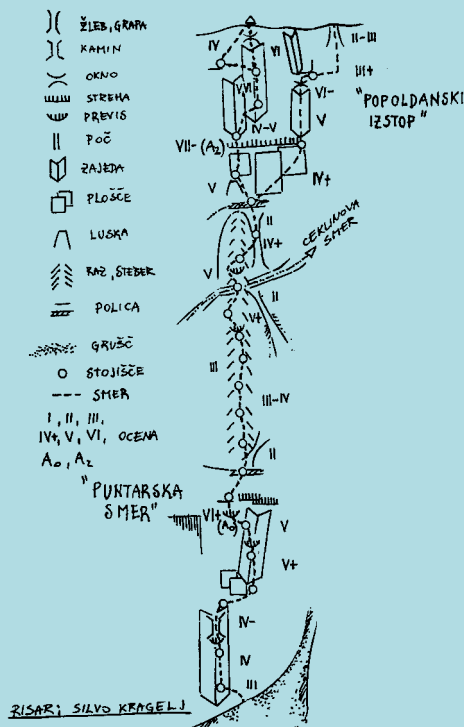 ŽLEB, GRAPA
KAMIN
OKNO
STREHA
PREVIS
POČ
ZAJEDA
PLOŠČE
LUSKA
RAZ, STEBER
POLICA
GRUŠČ
STOJIŠČE
SMER
I, II, III,
IV+, V, VI, OCENA
A₀, A₂
"PUNTARSKA
SMER"
RISAR: SILVO KRAGELJ
IV
VI
II-III
III+
VI-
"POPOLDANSKI
IZSTOP"
V
VI
V
IV-V
VII- (A₂)
IV+
V
II
IV+
CEKLINOVA
SMER
V
II
V+
III
III-IV
II
VI+
(A₀)
V
V+
IV-
IV
III